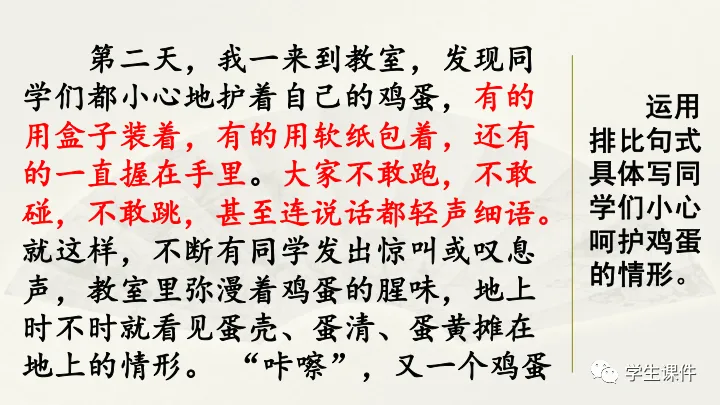 第二天，我一来到教室，发现同
学们都小心地护着自己的鸡蛋，有的
用盒子装着，有的用软纸包着，还有
的一直握在手里。大家不敢跑，不敢
碰，不敢跳，甚至连说话都轻声细语。
就这样，不断有同学发出惊叫或叹息
声，教室里弥漫着鸡蛋的腥味，地上
时不时就看见蛋壳、蛋清、蛋黄摊在
地上的情形。 “咔嚓”，又一个鸡蛋
运用
排比句式
具体写同
学们小心
呵护鸡蛋
的情形。
学生课件